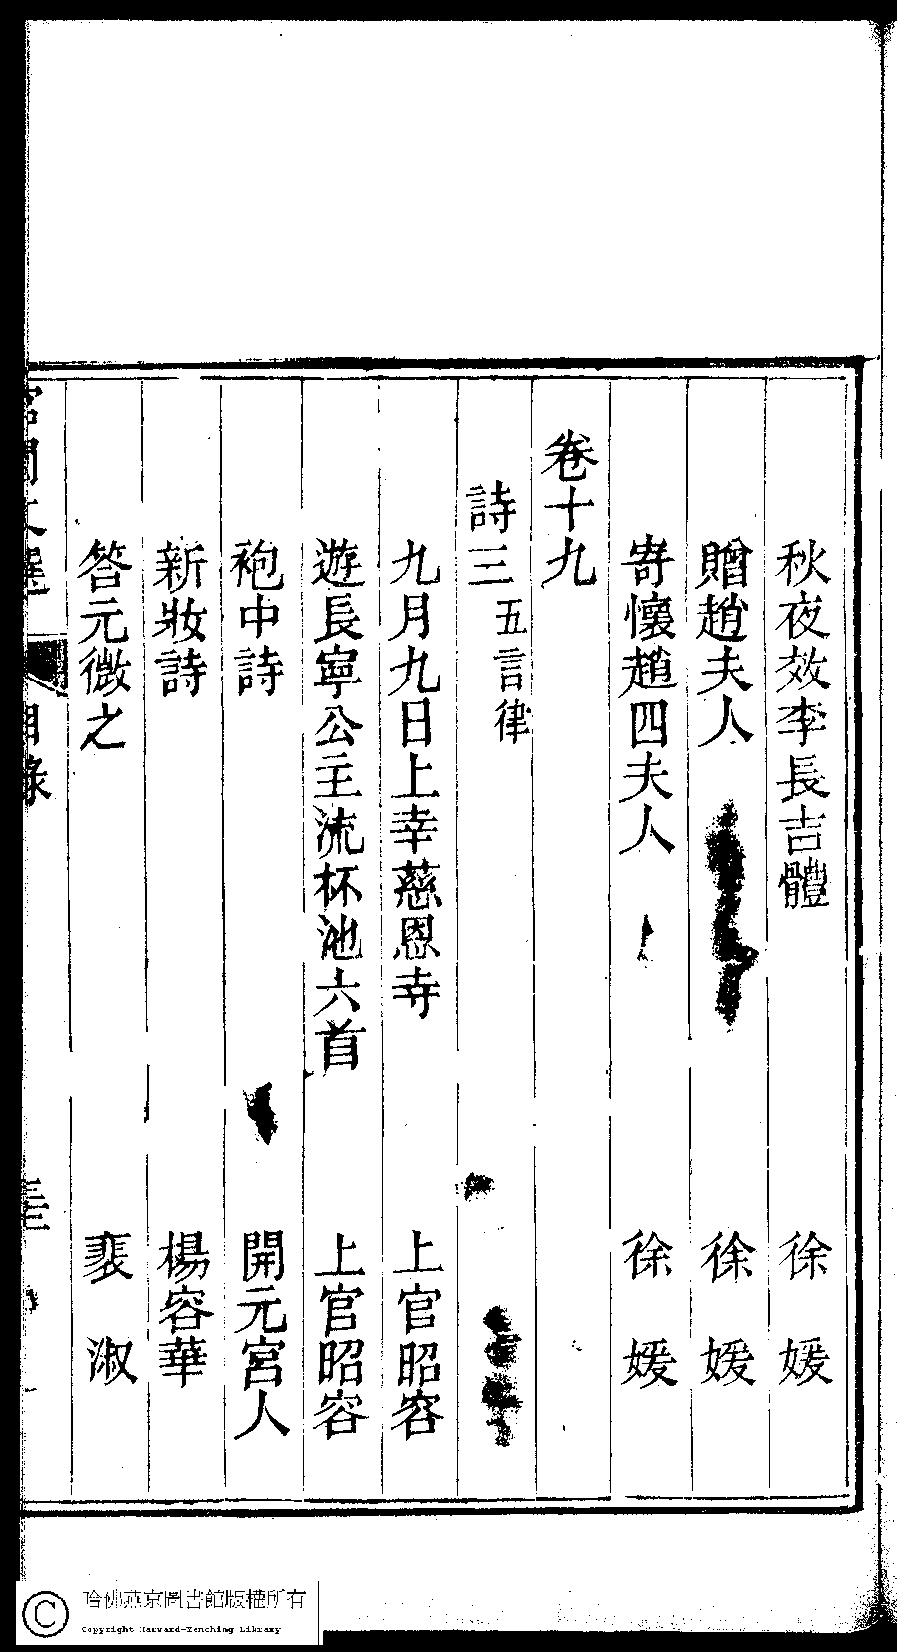 秋夜效李長吉體　徐　媛
贈趙夫人　徐　媛
寄懷趙四夫人　徐　媛
卷十九
詩三 五言律
九月九日上幸慈恩寺　上官昭容
遊長寧公主流杯池六首　上官昭容
袍中詩　開元宮人
新妝詩　楊容華
答元微之　裴　淑
宮閨文選　目錄
哈佛燕京圖書館版權所有
Copyright Harvard-Yenching Library